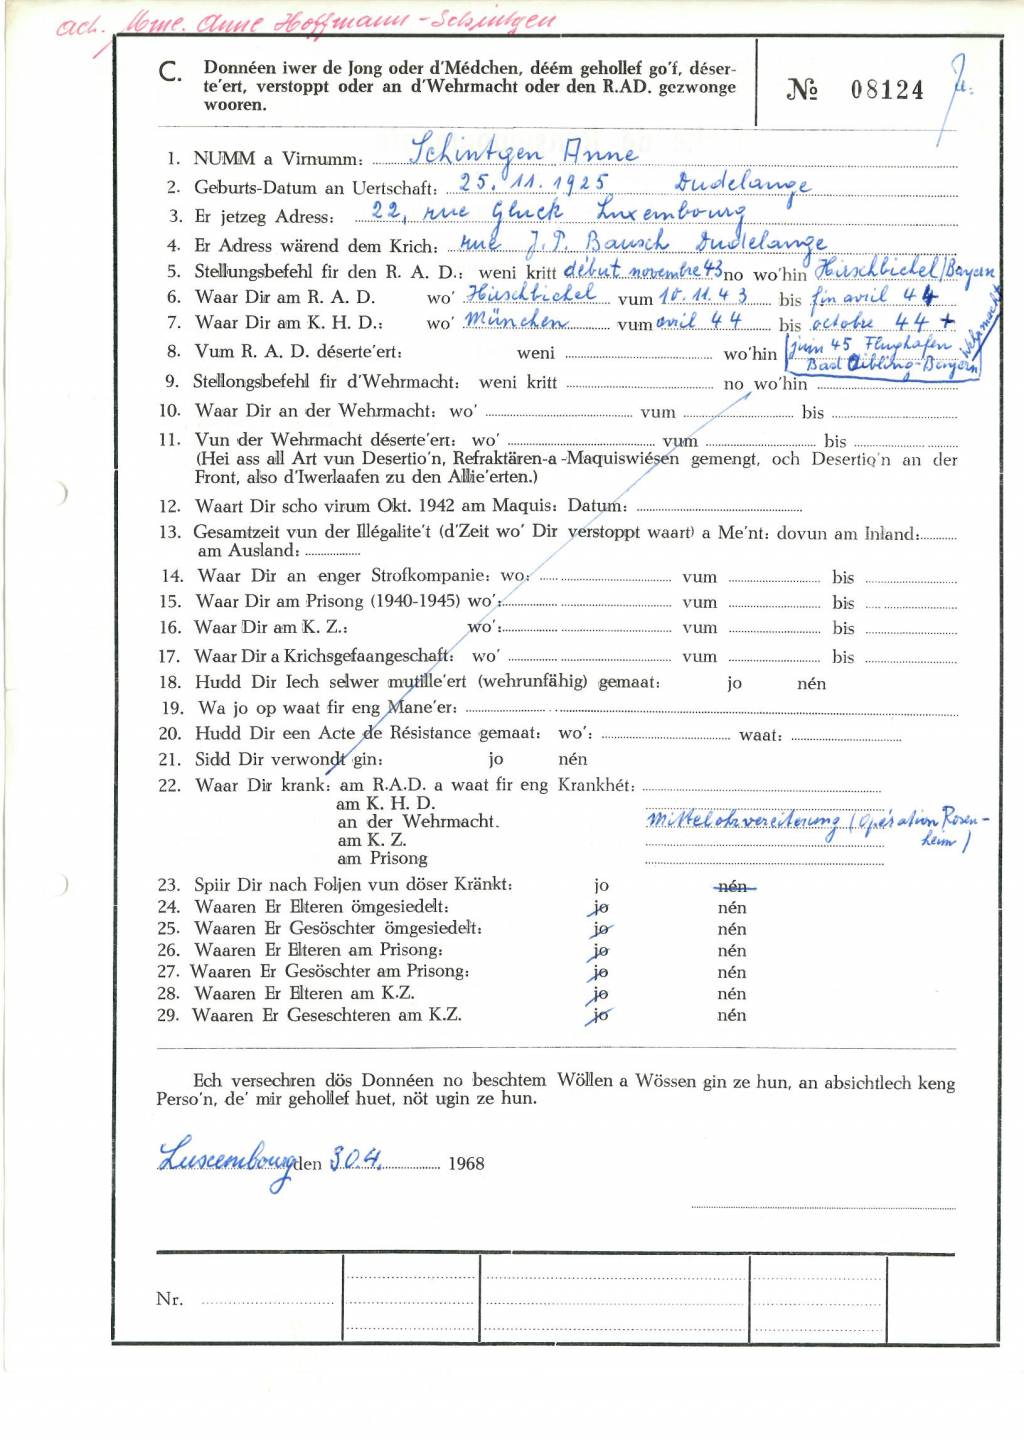 ach. Mme. Anne Hoffmann-Schintgen
C. Donnéen iwer de Jong oder d'Médchen, déém gehollef go'f, déser-
te'ert, verstoppt oder an d'Wehrmacht oder den R.AD. gezwonge
wooren.
№ 08124
1. NUMM a Virnumm: Schintgen Anne
2. Geburts-Datum an Uertschaft: 25. 11. 1925 Dudelange
3. Er jetzeg Adress: 22, rue Gluck Luxembourg
4. Er Adress wärend dem Krich: rue J.P. Bausch Dudelange
5. Stellungsbefehl fir den R. A. D.: weni kritt début novembre 43 no wo'hin Hirschbichel/Bayern
6. Waar Dir am R. A. D. wo' Hirschbichel vum 10.11.43 bis fin avril 44
7. Waar Dir am K. H. D.: wo' München vum avril 44 bis octobre 44 +
8. Vum R. A. D. déserte'ert: weni wo'hin juin 45 Flughafen
Bad Aibling-Bayern Wehrmacht
9. Stellongsbefehl fir d'Wehrmacht: weni kritt no wo'hin
10. Waar Dir an der Wehrmacht: wo' vum bis
11. Vun der Wehrmacht déserte'ert: wo' vum bis
(Hei ass all Art vun Desertio'n, Refraktären-a -Maquiswiésen gemengt, och Desertio'n an der
Front, also d'Iwerlaafen zu den Allie'erten.)
12. Waart Dir scho virum Okt. 1942 am Maquis: Datum:
13. Gesamtzeit vun der Illégalite't (d'Zeit wo' Dir verstoppt waart) a Me'nt: dovun am Inland:
am Ausland:
14. Waar Dir an enger Strofkompanie: wo: vum bis
15. Waar Dir am Prisong (1940-1945) wo': vum bis
16. Waar Dir am K. Z.: wo': vum bis
17. Waar Dir a Krichsgefaangeschaft: wo' vum bis
18. Hudd Dir Iech selwer mutille'ert (wehrunfähig) gemaat: jo nén
19. Wa jo op waat fir eng Mane'er:
20. Hudd Dir een Acte de Résistance gemaat: wo': waat:
21. Sidd Dir verwondt gin: jo nén
22. Waar Dir krank: am R.A.D. a waat fir eng Krankhét:
am K. H. D.
an der Wehrmacht. Mittelohrvereiterung (Opération Rosen-
heim)
am K. Z.
am Prisong
23. Spiir Dir nach Foljen vun döser Kränkt: jo nén
24. Waaren Er Elteren ömgesiedelt: jo nén
25. Waaren Er Gesöschter ömgesiedelt: jo nén
26. Waaren Er Elteren am Prisong: jo nén
27. Waaren Er Gesöschter am Prisong: jo nén
28. Waaren Er Elteren am K.Z. jo nén
29. Waaren Er Geseschteren am K.Z. jo nén
Ech versechren dös Donnéen no beschtem Wöllen a Wössen gin ze hun, an absichtlech keng
Perso'n, de' mir gehollef huet, nöt ugin ze hun.
Luxembourg den 30.4. 1968
Nr.